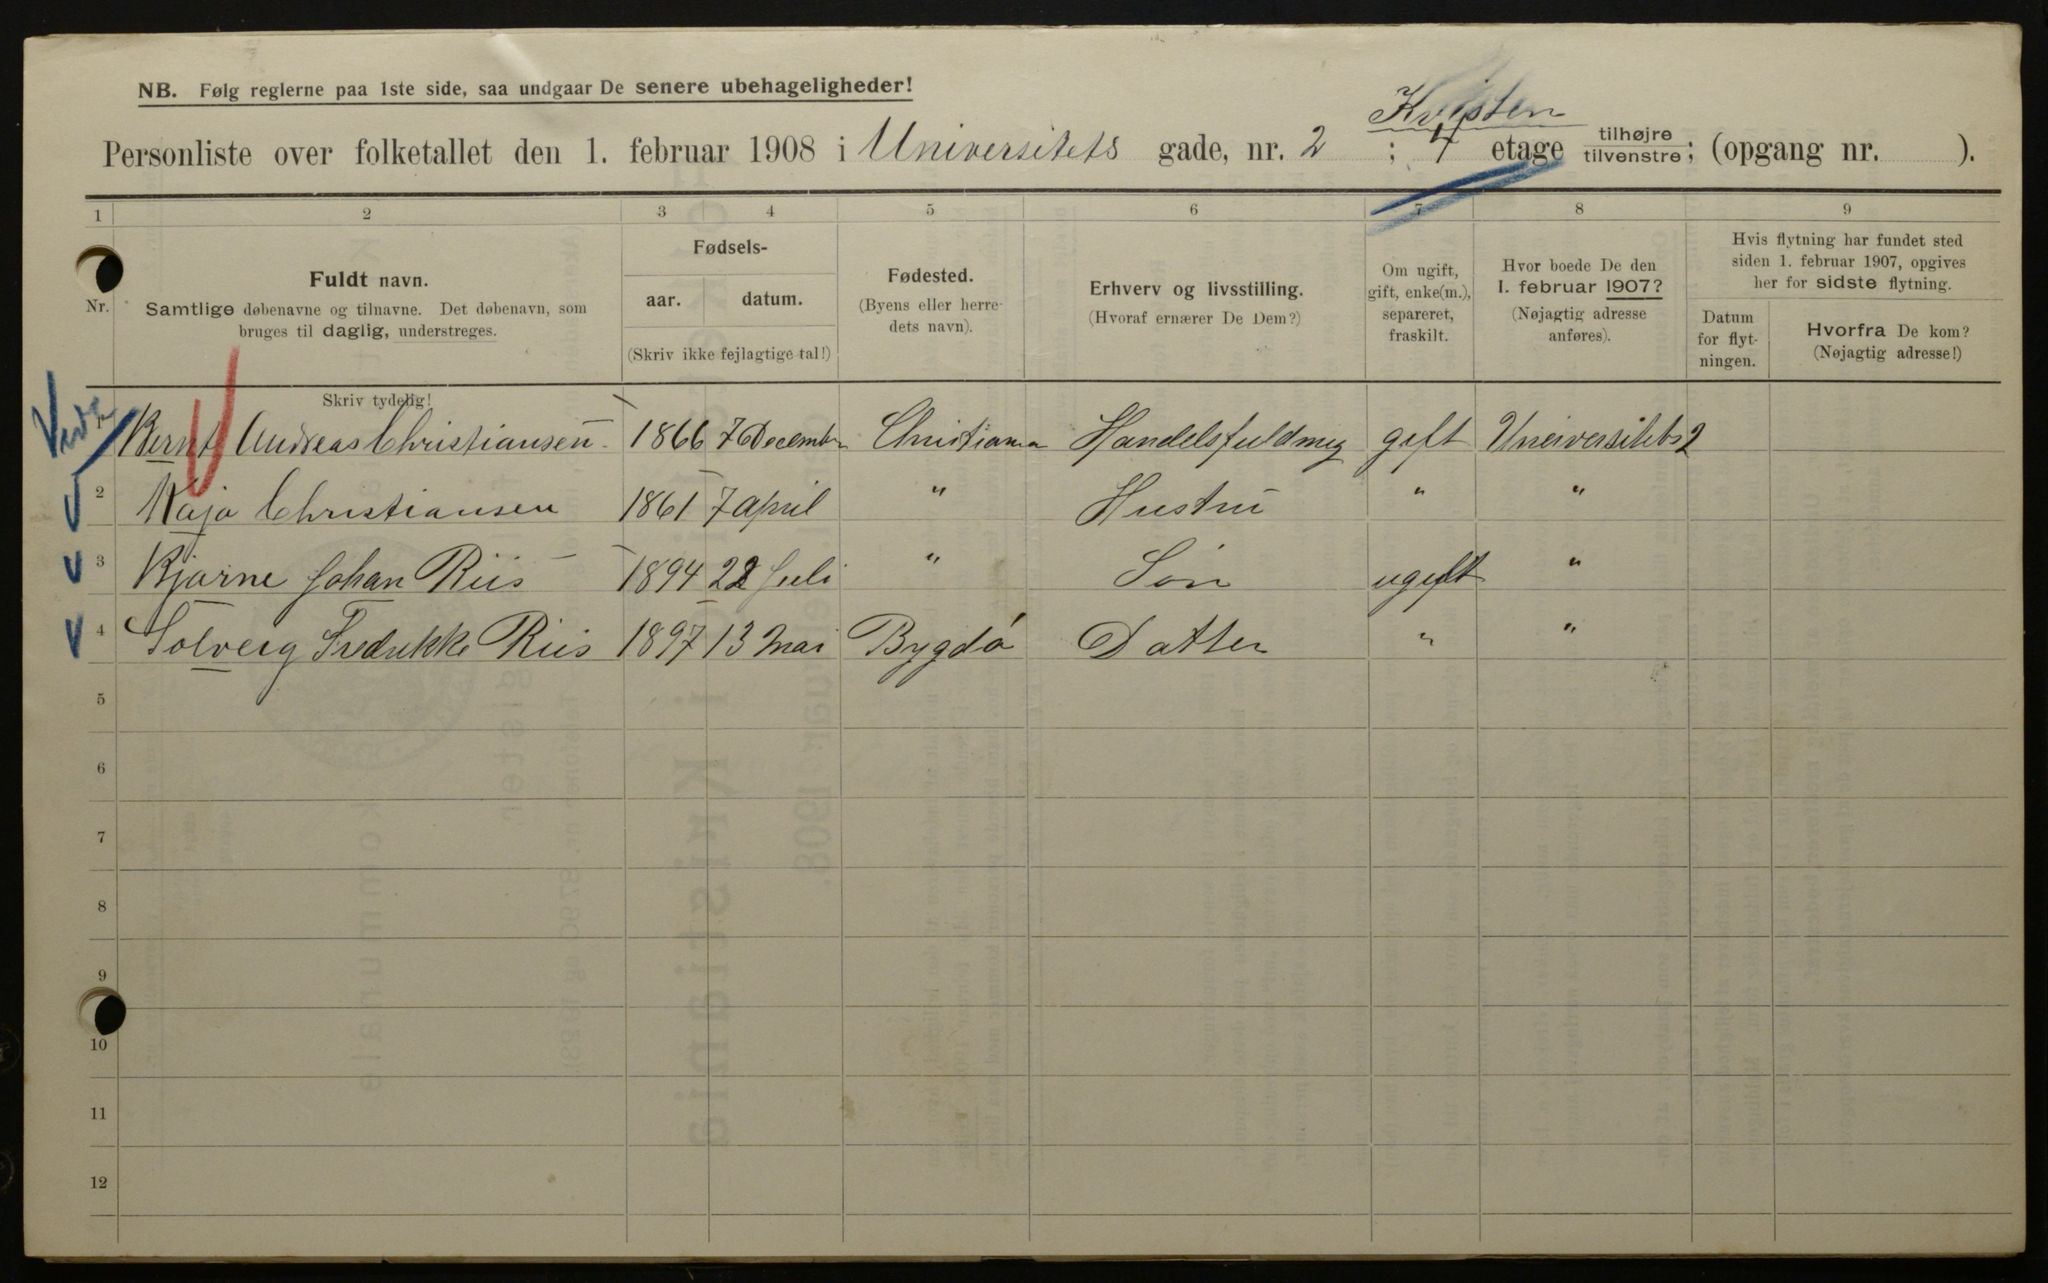 NB. Følg reglerne paa 1ste side, saa undgaar De senere ubehageligheder!
Kvisten
Personliste over folketallet den 1. februar 1908 i Universitets gade, nr. 2 ; 4 etage tilhøjre/tilvenstre; (opgang nr. ).
1 2 3 4 5 6 7 8 9
Nr.
Fuldt navn.
Samtlige døbenavne og tilnavne. Det døbenavn, som
bruges til daglig, understreges.
Skriv tydelig!
Fødsels-
aar. datum.
(Skriv ikke fejlagtige tal!)
Fødested.
(Byens eller herre-
dets navn).
Erhverv og livsstilling.
(Hvoraf ernærer De Dem?)
Om ugift,
gift, enke(m.),
separeret,
fraskilt.
Hvor boede De den
1. februar 1907?
(Nøjagtig adresse
anføres).
Hvis flytning har fundet sted
siden 1. februar 1907, opgives
her for sidste flytning.
Datum
for flyt-
ningen.
Hvorfra De kom?
(Nøjagtig adresse!)
1 Bernt Andreas Christiansen 1866 7 December Christiania Handelsfuldmeg gift Universitets 2
2 Kaja Christiansen 1861 7 April " Hustru " "
3 Bjarne Johan Riis 1894 22 Juli " Søn ugift "
4 Solveig Fredrikke Riis 1897 13 Mai Bygdø Datter " "
5
6
7
8
9
10
11
12